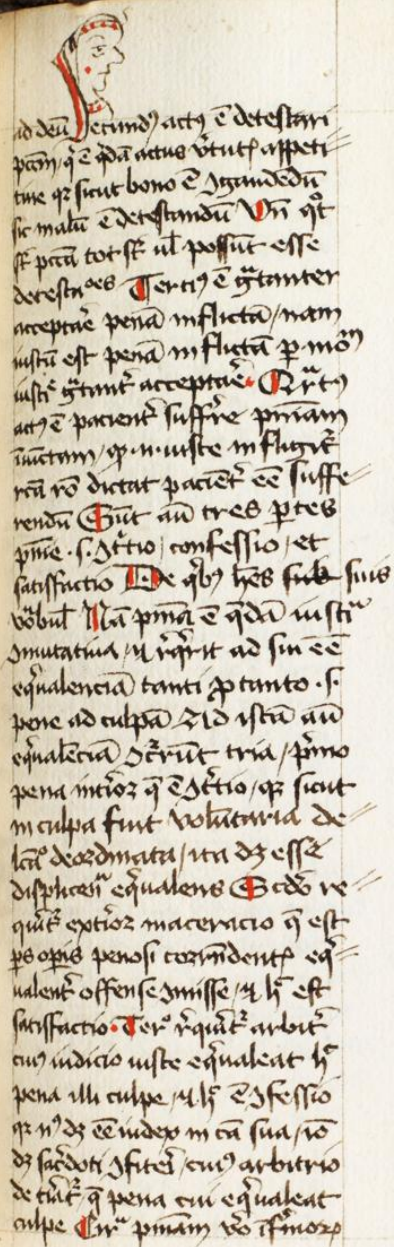 ad deū Secundꝰ actꝰ ē detestari
pctm̄, q̄ ē q̄dā actus v̓tutꝭ appeti
tiue qꝛ sicut bono ē ɔgaudēdū
sic malū ē detestandū Vn̄ qͦt
sūt pccā tot sūt ul̓ possūt esse
detestaͦes Terciꝰ ē gͣtanter
acceptar̄e penā inflictā, nam
iustū est penā inflictā p
iuste gͣtant̓ acceptar̄e. Qͣrtꝰ
actꝰ ē pacient̓ suffr̄e pn̄iam
iniūctam, iuste infligit̓
rcā rō dictat pacient̓ eē suffe
rendū Sūt aū tres ꝑtes
pn̄ie .s. ɔt̓tio, confessio, et
satisfactio De qͥbꝰ hēs sub suis
vͦbul̓ Nā pn̄ia ē q̄dā iustiͣ
ɔmutatiua, ⁊ rͥqͥrit ad sui eē
eqͥualenciā tanti ꝓ tanto .s.
pene ad culpā Ad istā aū
eqͥualēciā ɔcͥrrūt tria, pͥmo
pena int̓ioꝛ q̄ ē ɔt̓tio, qꝛ sicut
in culpa fuit voluntaria de
lcͦ̄ deordinata, ita dꝫ esse
displicen̄ eqͥualens Scd̓o re
qͥrit̓ ext̓ioꝛ maceracio q̄ est
ꝑs oꝑis penosi corrn̄dentꝭ eqͥ
ualent̓ offense ɔmisse, ⁊ hͨ est
satisfactio. Terͦ rͥqͥrit̓ arbit̓
cuiꝰ iudicio iuste eqͥualeat hͨ
pena illi culpe, ⁊ hͨ ē ɔfessio
qꝛ nͫ dꝫ eē iudex in cā sua, iō
dꝫ sac̓doti ɔfit̓i, cuiꝰ arbitrio
q̄ pena cui eqͥualeat
culpe Cirͣ pn̄iam v̓o īfirmoꝝ